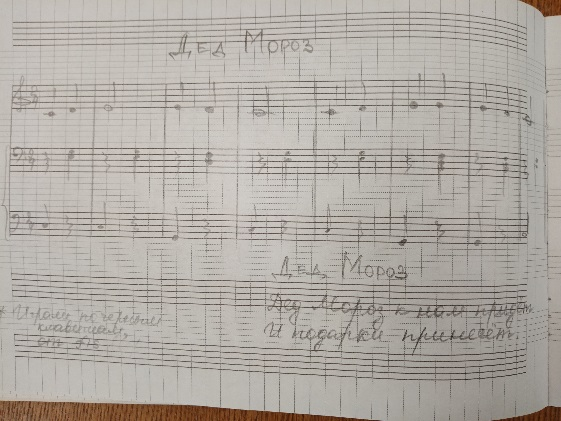 Дед Мороз
Дед Мороз
Дед Мороз к нам придёт
И подарки принесёт.
* Играть по чёрным
клавишам,
от